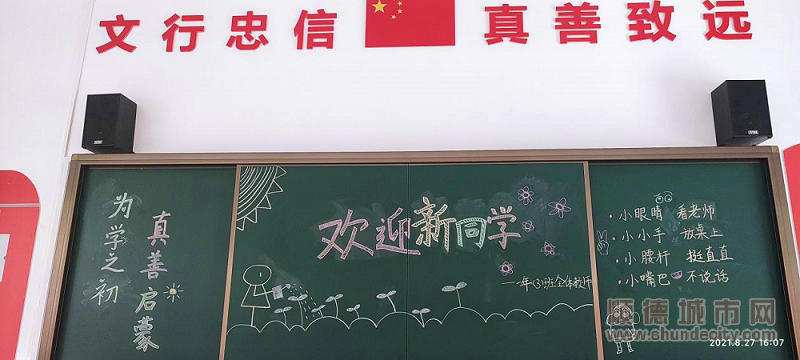 文行忠信 真善致远
为学之初
真善启蒙
欢迎新同学
一年(3)班全体教师
·小眼睛 看老师
·小小手 放桌上
·小腰杆 挺直直
·小嘴巴 不说话
顺德城市网
www.shundecity.com
2021.8.27 16:07